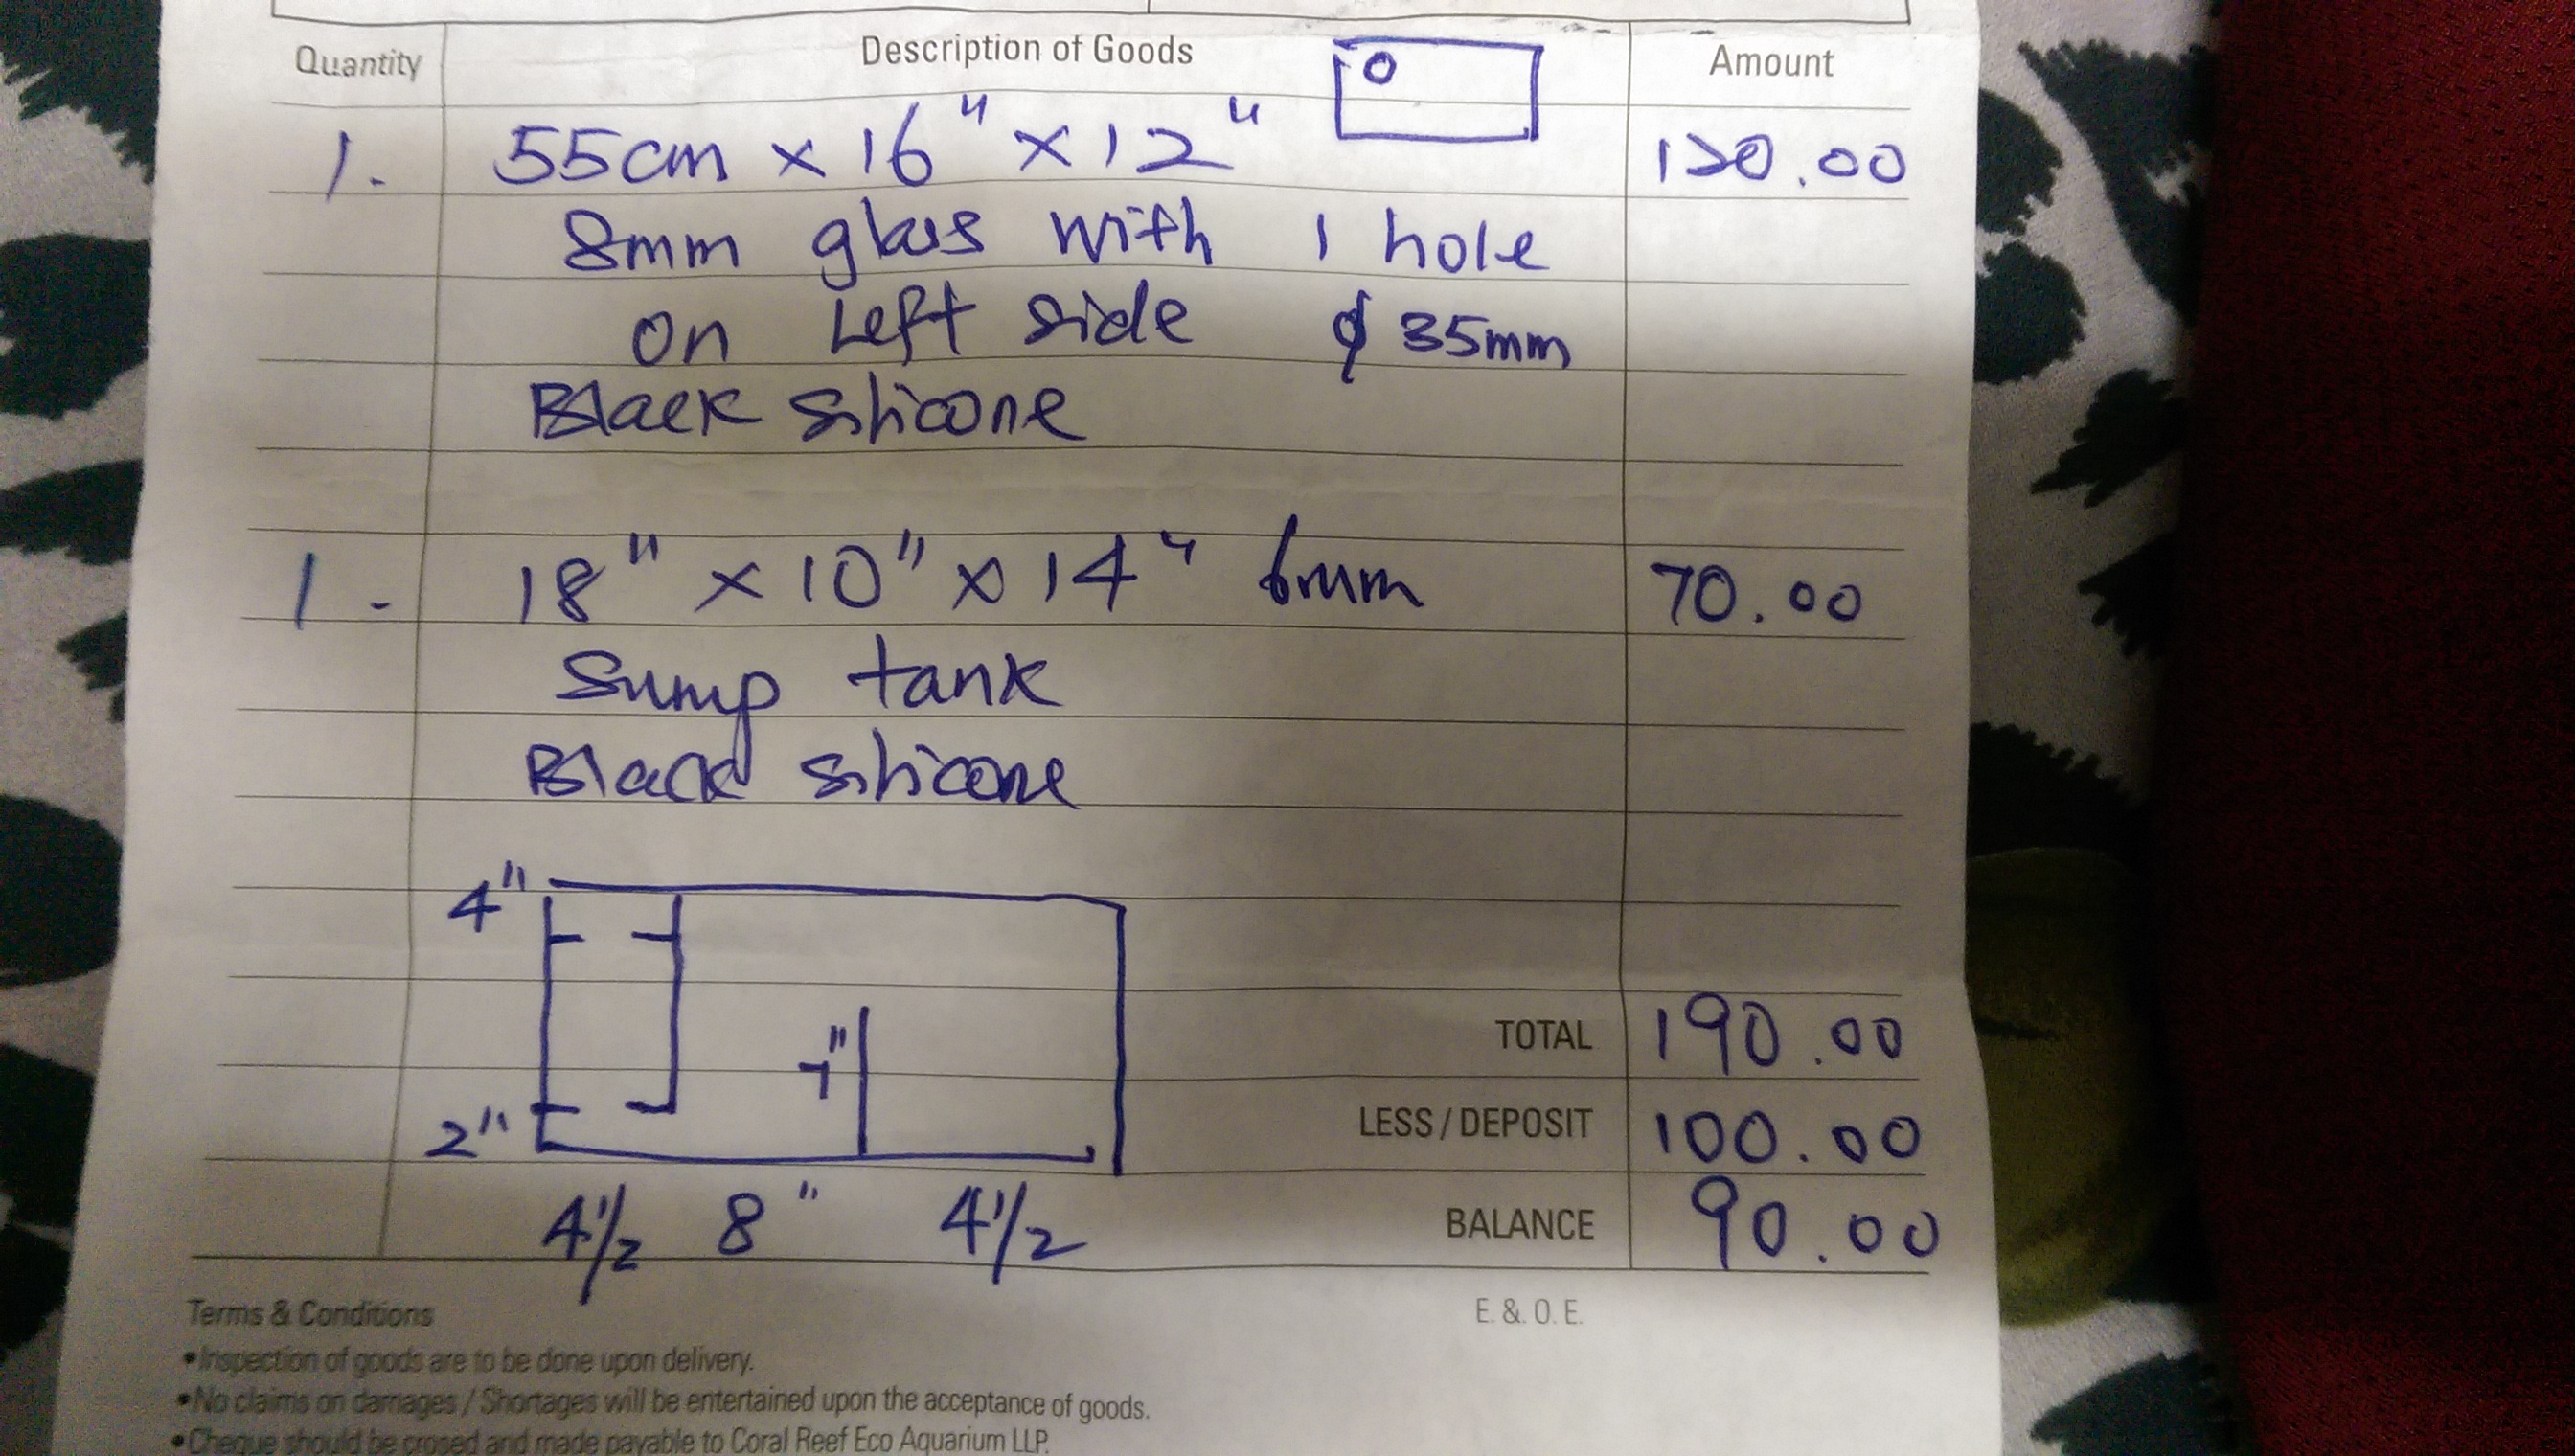 Quantity Description of Goods Amount
1. 55cm x 16" x 12" 120.00
8mm glass with 1 hole
on Left side ϕ 35mm
Black silicone
1 - 18" x 10" x 14" 6mm 70.00
Sump tank
Black silicone
4"
7"
2"
4 1/2 8" 4 1/2
TOTAL 190.00
LESS / DEPOSIT 100.00
BALANCE 90.00
Terms & Conditions E. &. O. E.
•Inspection of goods are to be done upon delivery.
•No claims on damages / Shortages will be entertained upon the acceptance of goods.
•Cheque should be crosed and made payable to Coral Reef Eco Aquarium LLP.